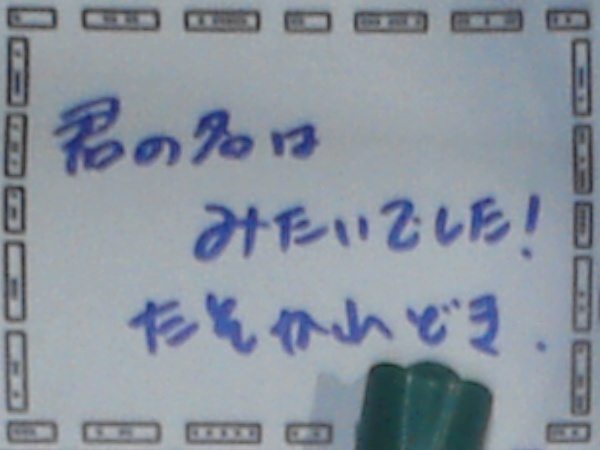 君の名は
みたいでした!
たそかれどき.